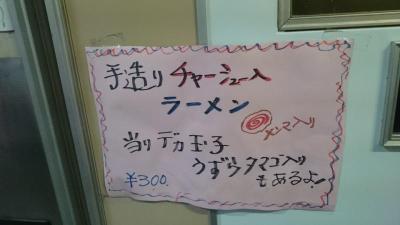 手造りチャーシュー入
ラーメン
メンマ入り
当りデカ玉子
うずらタマゴ入り
もあるよ!
¥300.